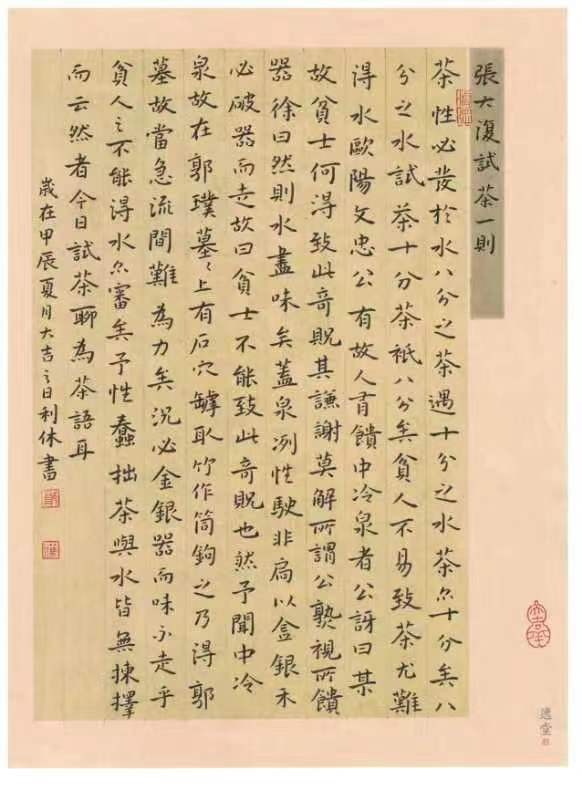 張大復試茶一則
茶性必發於水八分之茶遇十分之水茶亦十分矣八
分之水試茶十分茶祇八分矣貧人不易致茶尤難
得水歐陽文忠公有故人有饋中冷泉者公訝曰某
故貧士何得致此奇貺其謙謝莫解所謂公熟視所饋
器徐曰然則水盡味矣蓋泉冽性駛非扃以金銀未
必破器而走故曰貧士不能致此奇貺也然予聞中冷
泉故在郭璞墓々上有石穴罅取竹作筒鉤之乃得郭
墓故當急流間難為力矣況必金銀器而味不走乎
貧人之不能得水亦審矣予性蠢拙茶與水皆無揀擇
而云然者今日試茶聊為茶語耳
歲在甲辰夏月大吉之日利休書
逸堂